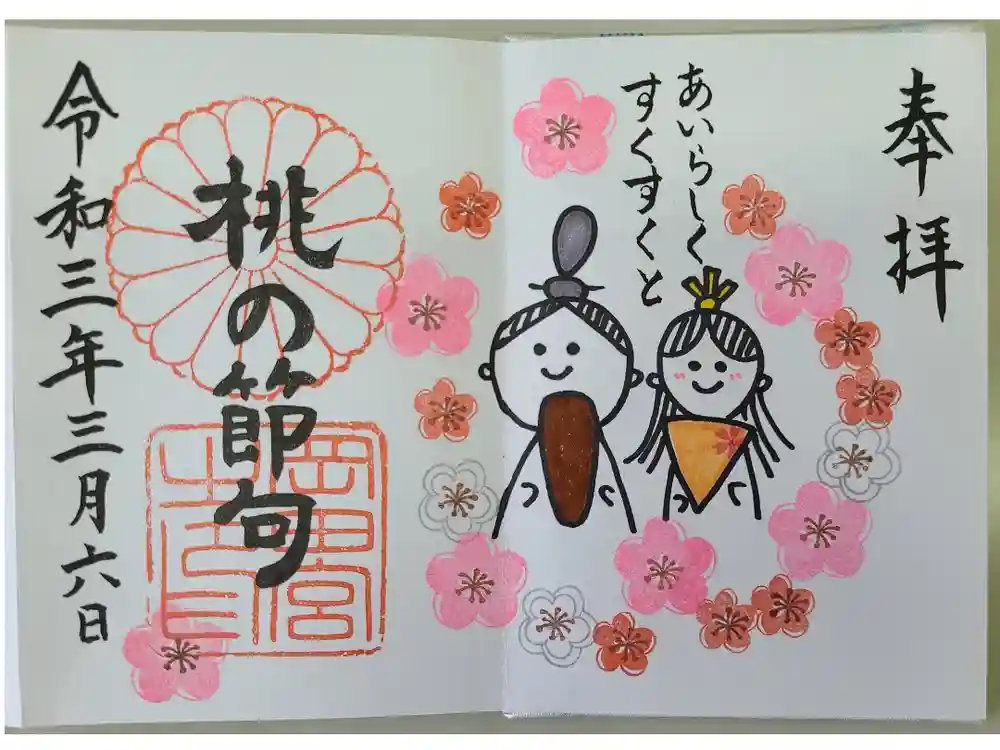 奉拝
あいらしく
すくすくと
桃の節句
岡田宮
之印
令和三年三月六日